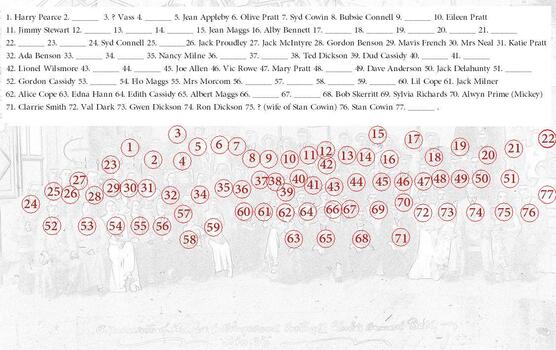 1. Harry Pearce 2. ______ 3. ? Vass 4. ______ 5. Jean Appleby 6. Olive Pratt 7. Syd Cowin 8. Bubsie Connell 9. ______ 10. Eileen Pratt
11. Jimmy Stewart 12. ______ 13. ______ 14. ______ 15. Jean Maggs 16. Alby Bennett 17. ______ 18. ______ 19. ______ 20. ______ 21. ______
22. ______ 23. ______ 24. Syd Connell 25. ______ 26. Jack Proudley 27. Jack McIntyre 28. Gordon Benson 29. Mavis French 30. Mrs Neal 31. Katie Pratt
32. Ada Benson 33. ______ 34. ______ 35. Nancy Milne 36. ______ 37. ______ 38. Ted Dickson 39. Dud Cassidy 40. ______ 41. ______
42. Lionel Wilsmore 43. ______ 44. ______ 45. Joe Allen 46. Vic Rowe 47. Mary Pratt 48. ______ 49. Dave Anderson 50. Jack Delahunty 51. ______
52. Gordon Cassidy 53. ______ 54. Ho Maggs 55. Mrs Morcom 56. ______ 57. ______ 58. ______ 59. ______ 60. Lil Cope 61. Jack Milner
62. Alice Cope 63. Edna Hann 64. Edith Cassidy 65. Albert Maggs 66. ______ 67. ______ 68. Bob Skerritt 69. Sylvia Richards 70. Alwyn Prime (Mickey)
71. Clarrie Smith 72. Val Dark 73. Gwen Dickson 74. Ron Dickson 75. ? (wife of Stan Cowin) 76. Stan Cowin 77. ______ .
3 15 17 22
1 5 6 7 12 19 21
23 2 4 8 9 10 11 42 13 14 16 18 20
24 25 26 27 28 29 30 31 32 34 35 36 37 38 39 40 41 43 44 45 46 47 48 49 50 51 77
52 53 54 55 56 57 60 61 62 64 66 67 69 70 72 73 74 75 76
58 59 63 65 68 71